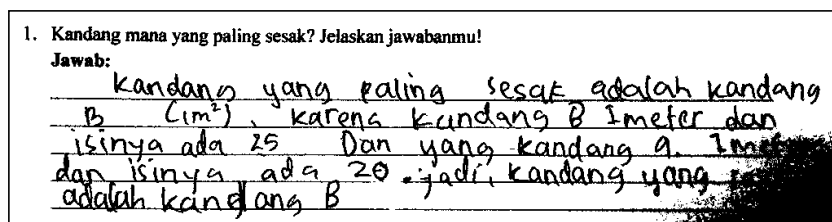 1. Kandang mana yang paling sesak? Jelaskan jawabanmu!
Jawab:
Kandang yang paling sesak adalah kandang
B (1m²), karena kandang B 1meter dan
isinya ada 25 Dan yang kandang a. 1
dan isinya ada 20. jadi, kandang yang
adalah kandang B